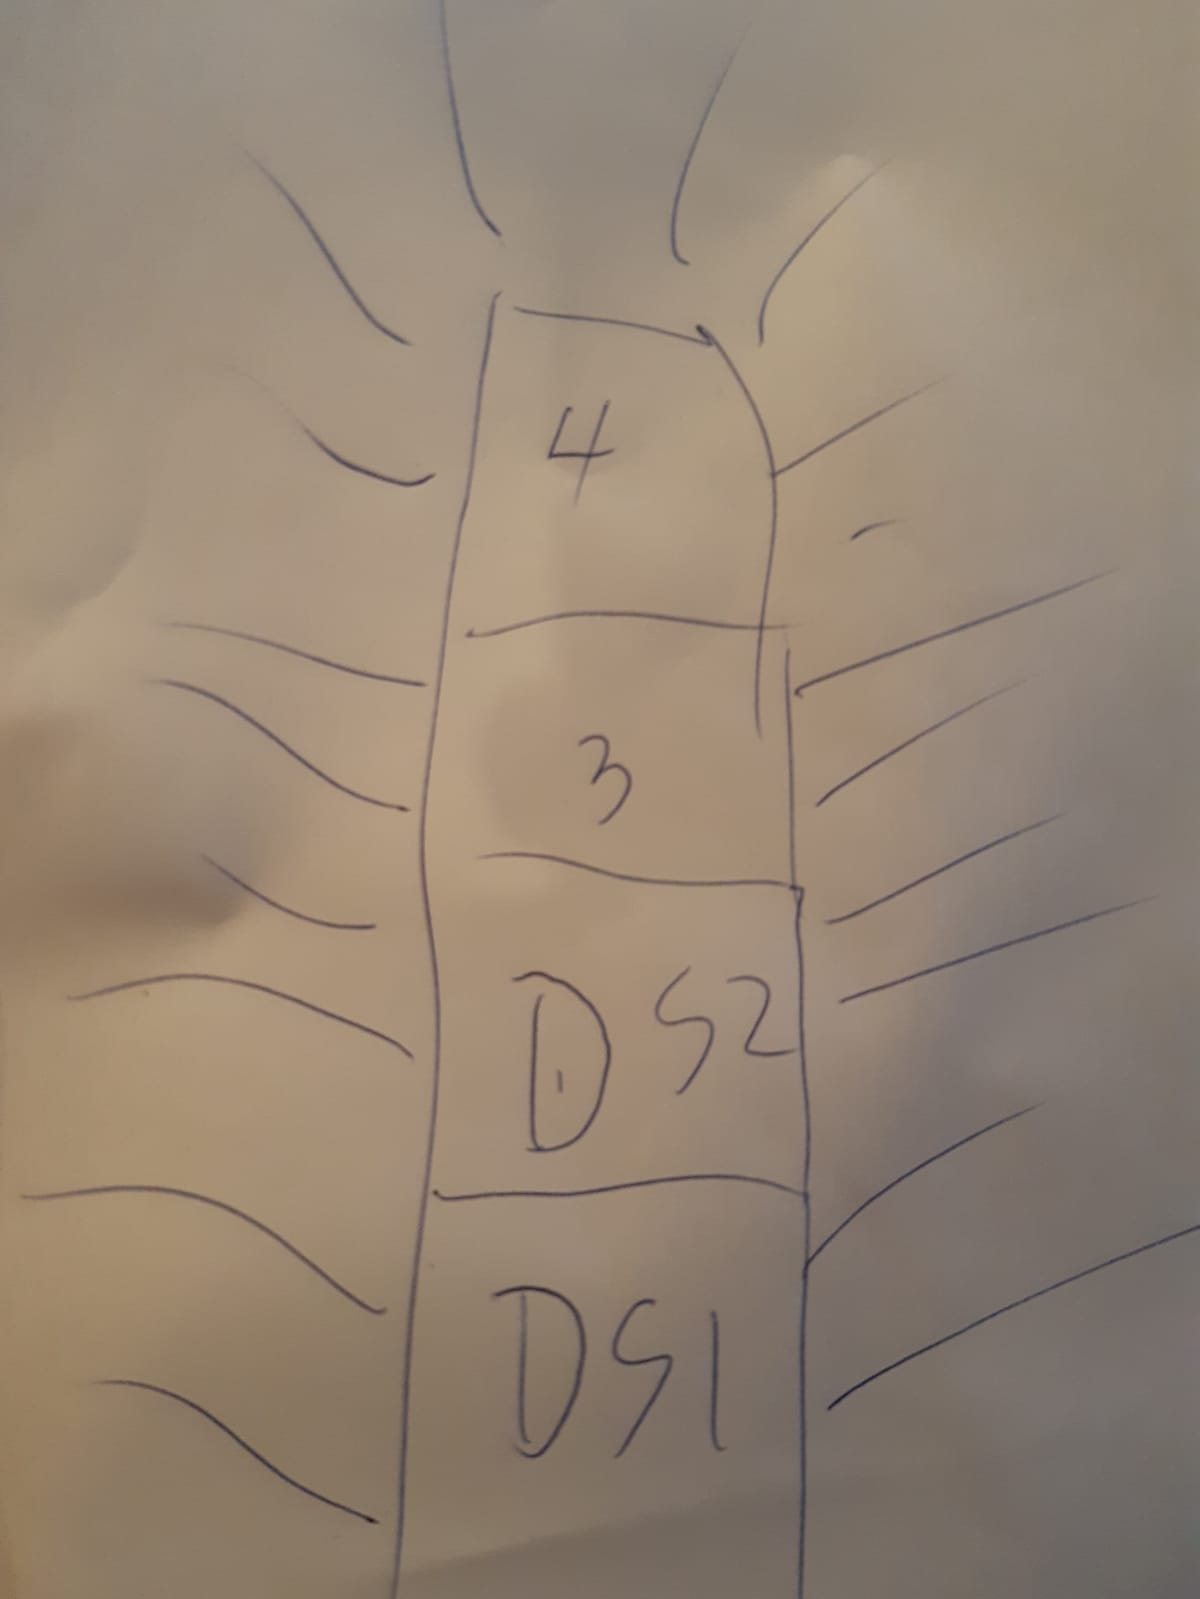 4
3
DS2
DS1